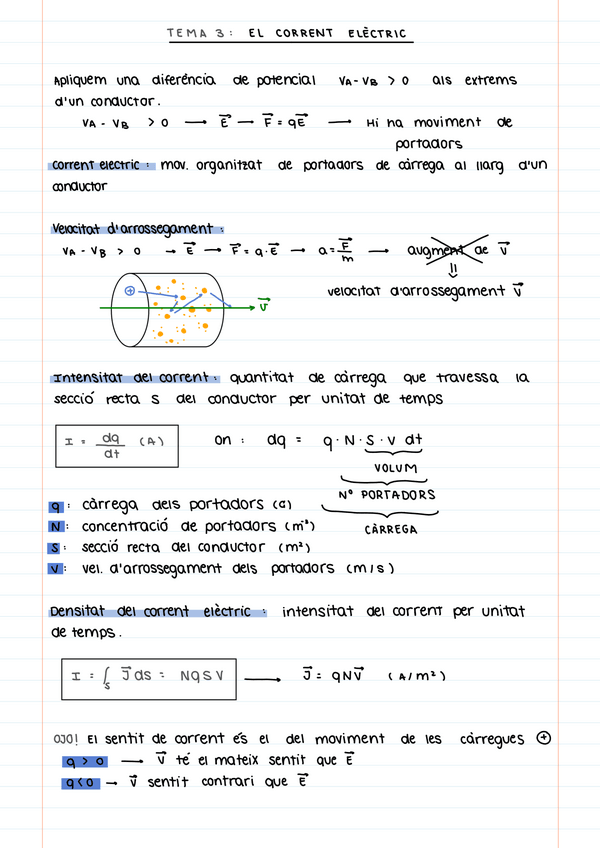 TEMA 3: EL CORRENT ELÈCTRIC
Apliquem una diferència de potencial VA - VB > 0 als extrems
d'un conductor.
VA - VB > 0 → E⃗ → F⃗ = qE⃗ → Hi ha moviment de
portadors
Corrent electric: mov. organitzat de portadors de càrrega al llarg d'un
conductor
Velocitat d'arrossegament:
VA - VB > 0 → E⃗ → F⃗ = q·E⃗ → a = F⃗/m → augment de v⃗
⇓
velocitat d'arrossegament v⃗
+
v⃗
Intensitat del corrent: quantitat de càrrega que travessa la
secció recta S del conductor per unitat de temps
I = dq/dt (A) on: dq = q·N·S·v dt
VOLUM
Nº PORTADORS
CÀRREGA
q: càrrega dels portadors (C)
N: concentració de portadors (m⁻³)
S: secció recta del conductor (m²)
V: vel. d'arrossegament dels portadors (m/s)
Densitat del corrent elèctric: intensitat del corrent per unitat
de temps.
I = ∫s J⃗ ds = NqSV → J⃗ = qNv⃗ (A/m²)
OJO! El sentit de corrent és el del moviment de les càrregues ⊕
q > 0 → v⃗ té el mateix sentit que E⃗
q < 0 → v⃗ sentit contrari que E⃗